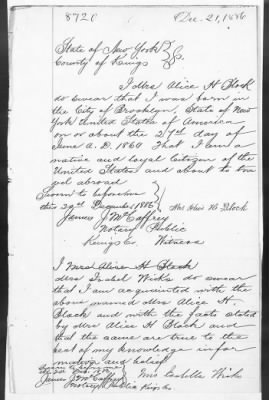 8720
Dec. 21, 1886
State of New York
County of Kings } S.S.
I Mrs Alice H Block
do swear that I was born in
the City of Brooklyn, State of New
York United States of America
on or about the 27th day of
June A.D. 1860 That I am a
native and loyal Citizen of the
United States and about to travel abroad
Sworn to before me
this 20th December 1886 } Mrs Alice H Block
James J McCaffrey
Notary Public
Kings Co. Witness
I Mrs Alice H Block
Mrs Isabel Wicks do swear
that I am acquainted with the
above named Mrs Alice H.
Block and with the facts stated
by Mrs Alice H Block and
that the same are true to the
best of my knowledge infor
mation and belief
James J McCaffrey
Notary Public Kings Co.
Mrs Wicks